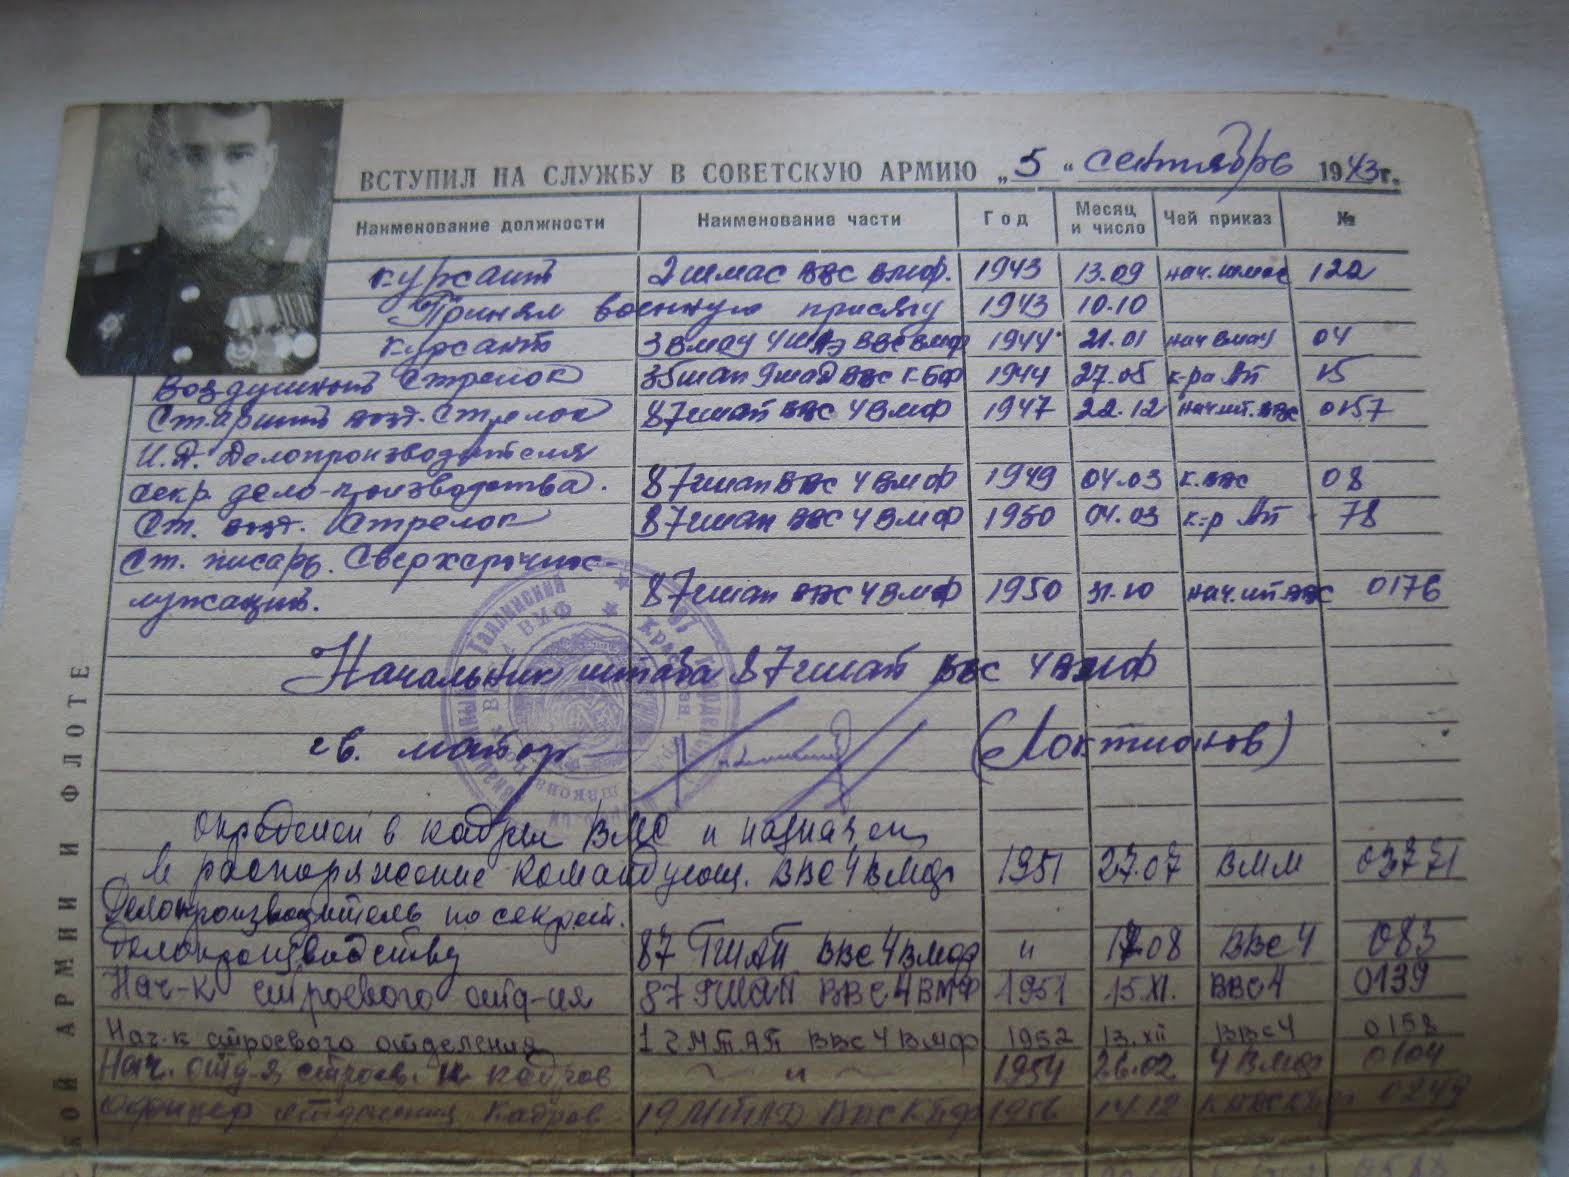 ВСТУПИЛ НА СЛУЖБУ В СОВЕТСКУЮ АРМИЮ „5“ сентябрь 1943г.
Наименование должности Наименование части Год Месяц и число Чей приказ №
курсант 2 шмас ВВС ВМФ. 1943 13.09 нач. шмас 122
Принял военную присягу 1943 10.10
курсант 3 ВМАУ ВВС ВМФ 1944 21.01 нач ВМАУ 04
Воздушный стрелок 35 шап 9 шад ВВС КБФ 1944 27.05 к-ра АП 15
Старший возд. стрелок 87 гшап ВВС 4 ВМФ 1947 22.12 нач. шт. ВВС 0157
И.Д. Делопроизводителя
секр. дело-производства. 87 гшап ВВС 4 ВМФ 1949 04.03 к. ВВС 08
Ст. возд. Стрелок 87 гшап ВВС 4 ВМФ 1950 04.03 к-р АП 78
Ст. писарь. Сверхсрочнос-
лужащий. 87 гшап ВВС 4 ВМФ 1950 31.10 нач. шт ВВС 0176
Начальник штаба 87 гшап ВВС 4 ВМФ
гв. майор (Локтионов)
определен в кадры ВМС и назначен
в распоряжение командующ. ВВС 4 ВМФ 1951 27.07 ВММ 03771
Делопроизводитель по секрет.
делопроизводству 87 ГШАП ВВС 4 ВМФ " 17.08 ВВС 4 083
Нач-к строевого отд-ия 87 ГШАП ВВС 4 ВМФ 1951 15.XI. ВВС 4 0139
Нач-к строевого отделения 1 ГМТАП ВВС 4 ВМФ 1952 13.XII ВВС 4 0158
Нач. отд-я строев. и кадров — " — 1954 26.02 4 ВМФ 0104
Офицер отделения кадров 19 МТАД ВВС КБФ 1956 14.12 0249
КОЙ АРМИИ И ФЛОТЕ